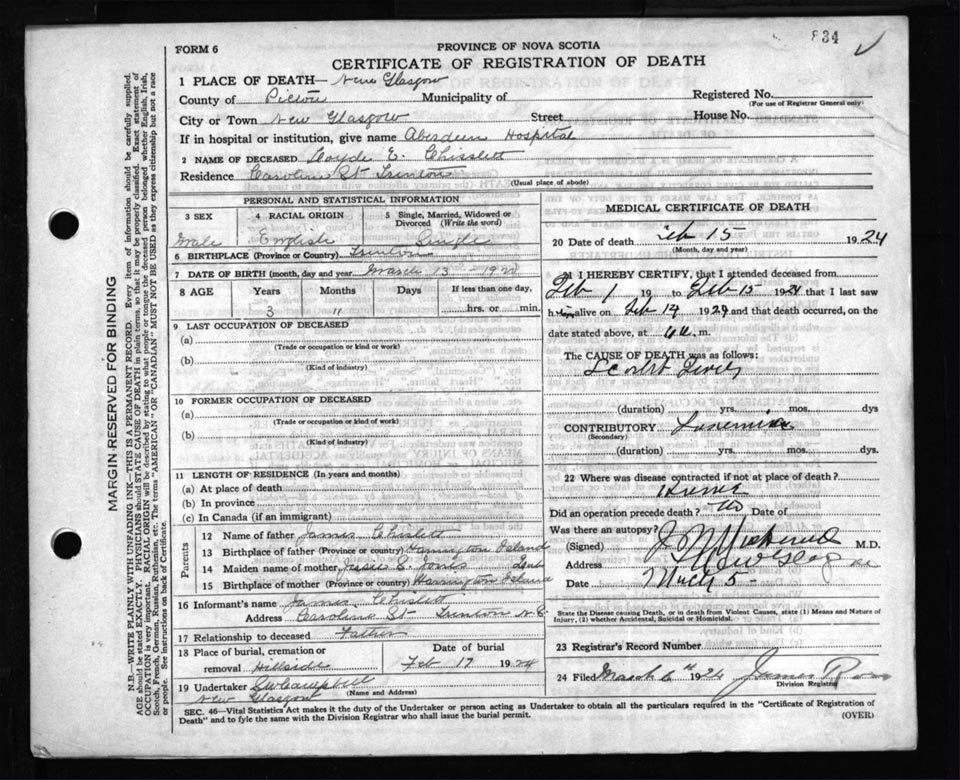 834
FORM 6
PROVINCE OF NOVA SCOTIA
CERTIFICATE OF REGISTRATION OF DEATH
1 PLACE OF DEATH— New Glasgow
County of Pictou Municipality of Registered No.
(For use of Registrar General only)
City or Town New Glasgow Street House No.
If in hospital or institution, give name Aberdeen Hospital
2 NAME OF DECEASED E. Chisslett
Residence Caroline St Trenton
(Usual place of abode)
PERSONAL AND STATISTICAL INFORMATION
3 SEX 4 RACIAL ORIGIN 5 Single, Married, Widowed or Divorced (Write the word)
Male English Single
6 BIRTHPLACE (Province or Country) Trenton
7 DATE OF BIRTH (month, day and year) March 13 - 192
8 AGE Years Months Days If less than one day,
3 11 hrs. or min.
9 LAST OCCUPATION OF DECEASED
(a)
(Trade or occupation or kind or work)
(b)
(Kind of industry)
10 FORMER OCCUPATION OF DECEASED
(a)
(Trade or occupation or kind of work)
(b)
(Kind of industry)
11 LENGTH OF RESIDENCE (In years and months)
(a) At place of death
(b) In province
(c) In Canada (if an immigrant)
Parents
12 Name of father James Chislett
13 Birthplace of father (Province or country) Harrington Island
14 Maiden name of mother Jessie E.
15 Birthplace of mother (Province or country) Harrington Island
16 Informant's name James Chislett
Address Caroline St Trenton N.S
17 Relationship to deceased Father
18 Place of burial, cremation or removal Hillside Date of burial Feb 17 1924
19 Undertaker Campbell
New Glasgow (Name and Address)
MEDICAL CERTIFICATE OF DEATH
20 Date of death Feb 15 1924
(Month, day and year)
21 I HEREBY CERTIFY, that I attended deceased from
Feb 1 19 to Feb 15 1924 that I last saw
him alive on Feb 14 1924 and that death occurred, on the
date stated above, at 6 a. m.
The CAUSE OF DEATH was as follows:
Scarlet Fever
(duration) yrs. mos. dys
CONTRIBUTORY Toxemia
(Secondary)
(duration) yrs. mos. dys.
22 Where was disease contracted if not at place of death?
Home
Did an operation precede death? No Date of
Was there an autopsy?
(Signed) M.D.
Address New Glasg
Date March 5 -
State the Disease causing Death, or in death from Violent Causes, state (1) Means and Nature of Injury, (2) whether Accidental, Suicidal or Homicidal.
23 Registrar's Record Number
24 Filed March 6th 1924 James
Division Registrar
SEC. 46—Vital Statistics Act makes it the duty of the Undertaker or person acting as Undertaker to obtain all the particulars required in the "Certificate of Registration of
Death" and to fyle the same with the Division Registrar who shall issue the burial permit. (OVER)
MARGIN RESERVED FOR BINDING
N.B.—WRITE PLAINLY WITH UNFADING INK—THIS IS A PERMANENT RECORD. Every item of information should be carefully supplied.
AGE should be stated EXACTLY. PHYSICIANS should STATE CAUSE OF DEATH in plain terms, so that it may be properly classified. Exact statement of
OCCUPATION is very important. RACIAL ORIGIN will be described by stating to what people or tongue the deceased person belonged whether English, Irish,
Scotch, French, German, Russian, Ruthenian, etc. The terms "AMERICAN" OR "CANADIAN" MUST NOT BE USED as they express citizenship but not a race
or people. See instructions on back of Certificate.